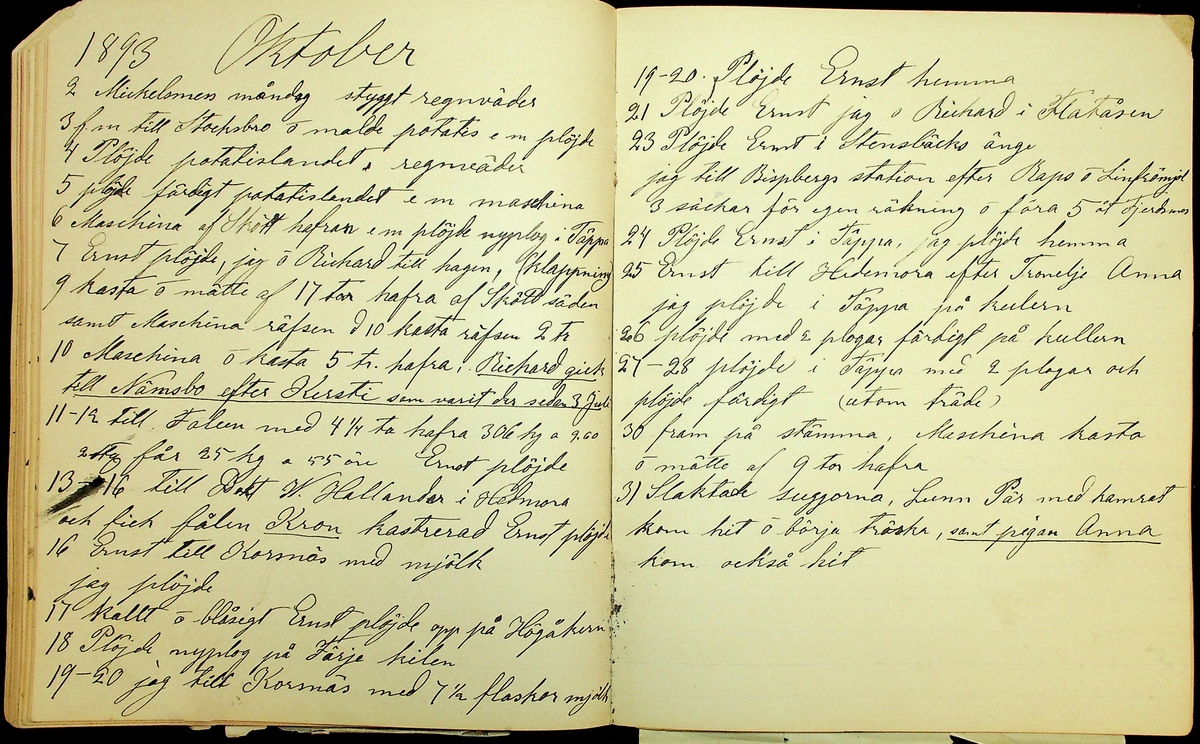 1893 Oktober
2 Mickelsmess måndag styggt regnväder
3 f.m till Stocksbro o malde potatis e m plöjde
4 Plöjde potatislandet, regnväder
5 plöjde färdigt potatislandet e m maschina
6 Maschina af Skött hafran e m plöjde nyplog i Täppa
7 Ernst plöjde, jag o Richard till hagen, (Klappning
9 kasta o mätte af 17 tor hafra af Skött säden
samt Maschina räfsen d 10 kasta räfsen 2 tr
10 Maschina o kasta 5 tr. hafra, Richard gick
till Nämsbo efter Kersti som varit der sedan 3 Juli
11-12 till Falun med 4 1/4 ta hafra 306 kg a 9,60
får 25 kg a 55 öre Ernst plöjde
13-16 till W. Hallander i Hedmora
och fick fålen Kron kastrerad Ernst plöjde
16 Ernst till Kornäs med mjölk
jag plöjde
17 kallt o blåsigt Ernst plöjde opp på Högåkern
18 Plöjde nyplog på Färje kilen
19-20 jag till Kornäs med 7 1/2 flaskor mjölk
19-20. Plöjde Ernst hemma
21 Plöjde Ernst jag o Richard i Flatåsen
23 Plöjde Ernst i Stensbäcks änge
jag till Bispbergs station efter Raps o Linfrömjöl
3 säckar för egen räkning o föra 5 åt
24 Plöjde Ernst i Täppa, jag plöjde hemma
25 Ernst till Hedemora efter Anna
jag plöjde i Täppa på kulern
26 plöjde med 2 plogar färdigt på kullern
27-28 plöjde i Täppa med 2 plogar och
plöjde färdigt (utom träde)
30 fram på stämma, Maschina kasta
o mätte af 9 tor hafra
31 Slaktade suggorna, Lunn Pär med kamrat
kom hit o börja tröska, samt pigan Anna
kom också hit